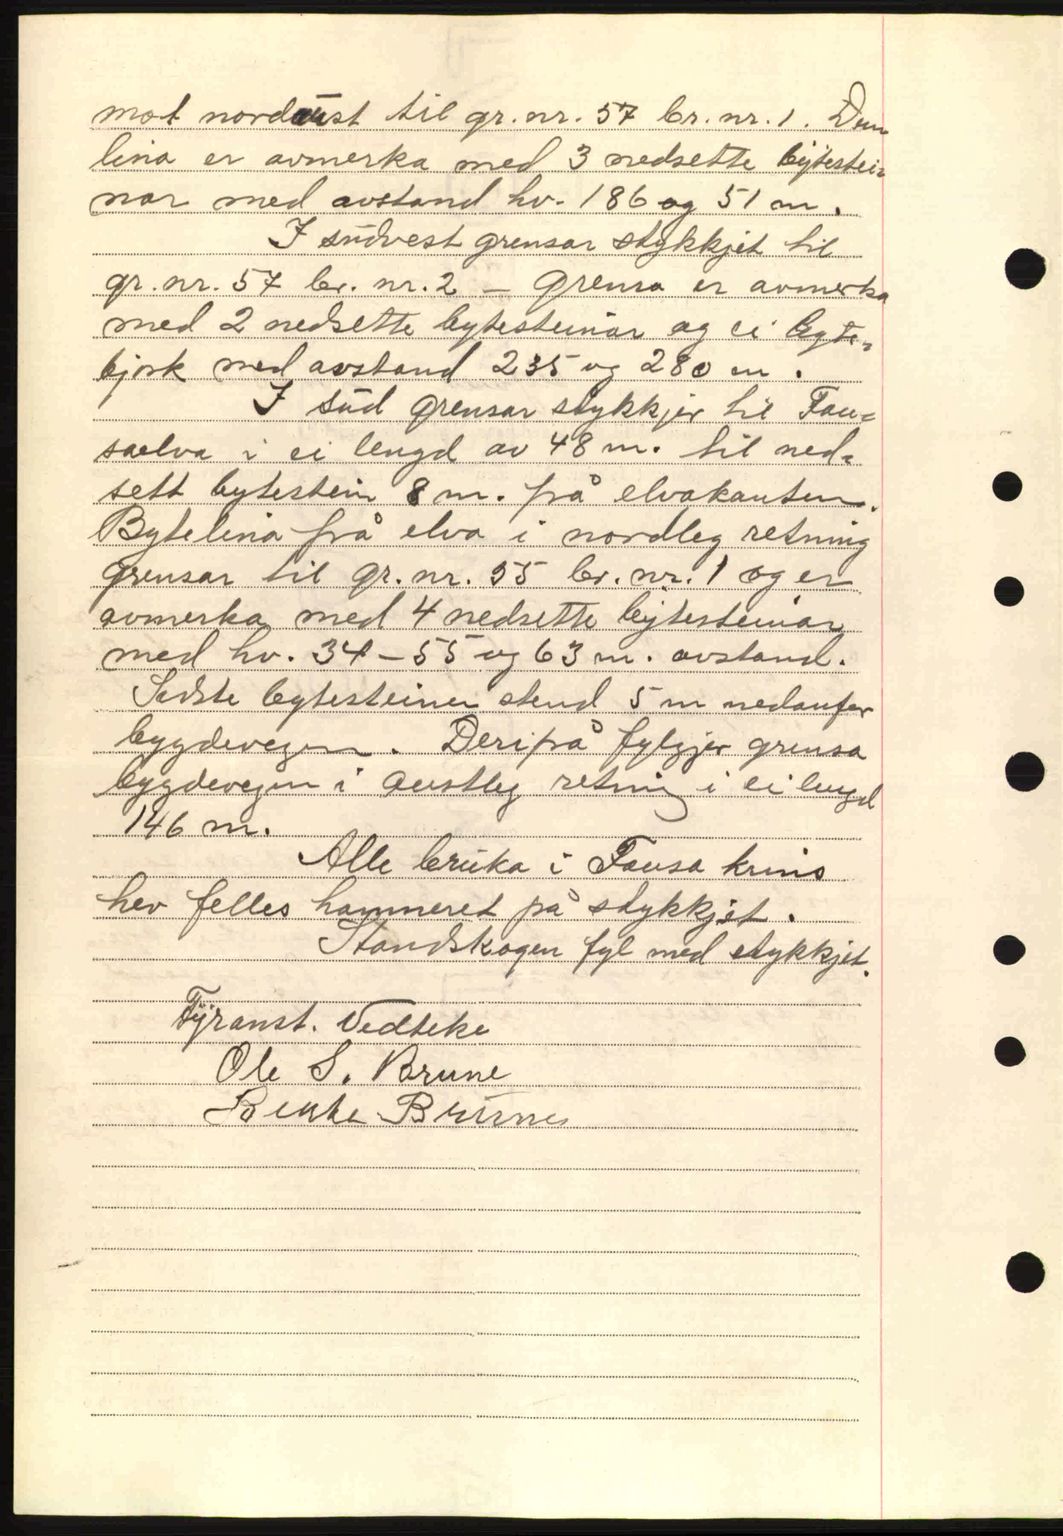 mot nordaust til gr. nr. 57 br. nr. 1. Den
lina er avmerka med 3 nedsette bytestei-
nar med avstand hv. 186 og 51 m.
I sudvest grensar stykkjet til
gr. nr. 57 br. nr. 2 – Grensa er avmerka
med 2 nedsette bytesteinar og ei byte-
bjørk med avstand 235 og 280 m.
I sud grensar stykkjer til Fau-
saelva i ei lengd av 48 m. til ned-
sett bytestein 8 m. frå elvakanten.
Bytelina frå elva i nordleg retning
grensar til gr. nr. 55 br. nr. 1 og er
avmerka med 4 nedsette bytesteinar
med hv. 34 – 55 og 63 m. avstand.
Sidste bytesteinen stend 5 m nedanfor
bygdevegen. Derifrå fylgjer grensa
bygdevegen i austleg retning i ei lengd
146 m.
Alle bruka i Fausa krins
hev felles hamneret på stykkjet.
Standskogen fyl med stykkjet.
Vedteke
Ole S. Brune
Brunes